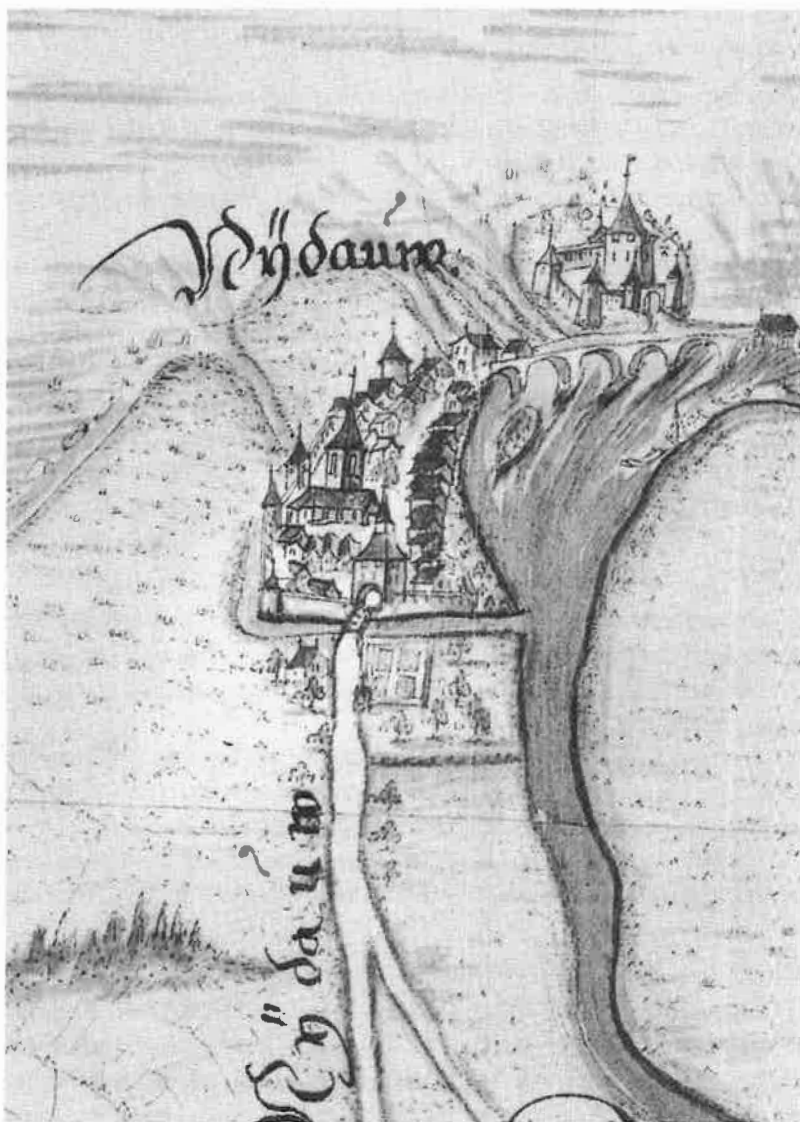 Nÿdauw.
Nÿdauw